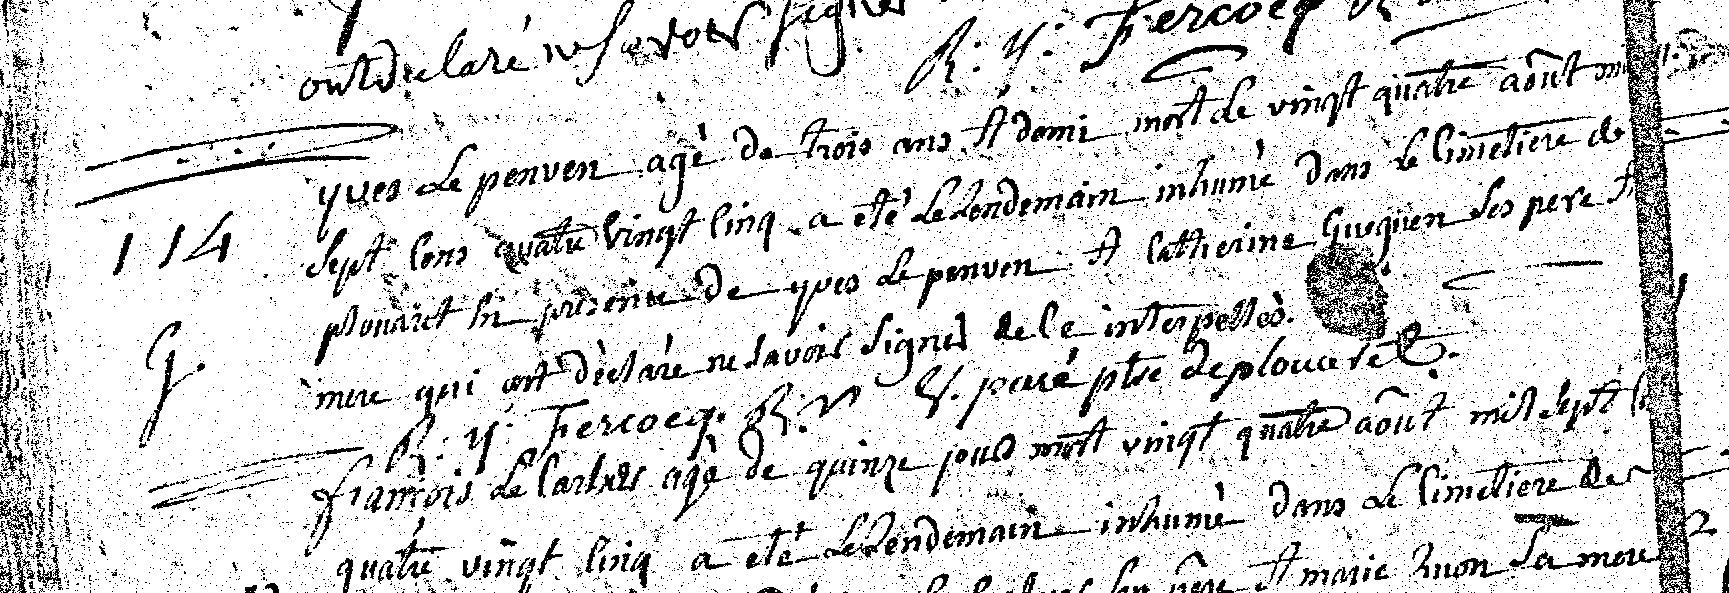 ont declaré ne savoir signer
R: Y: Fercocq
yves Le penven agé de trois ans et demi mort Le vingt quatre aôut
114
sept cens quatre vingt cinq a eté Le Lendemain inhumé dans Le cimetiere de
plouaret en presence de yves Le penven et catherine Gueguen ses pere et
G.
mere qui ont declaré ne savoir signer de ce interpellés.
R: Y: Fercocq. pbre de plouaret.
françois Le agé de quinze jours mort vingt quatre aôut mil sept
quatre vingt cinq a eté Le Lendemain inhumé dans Le cimetiere de
pere et marie sa mere